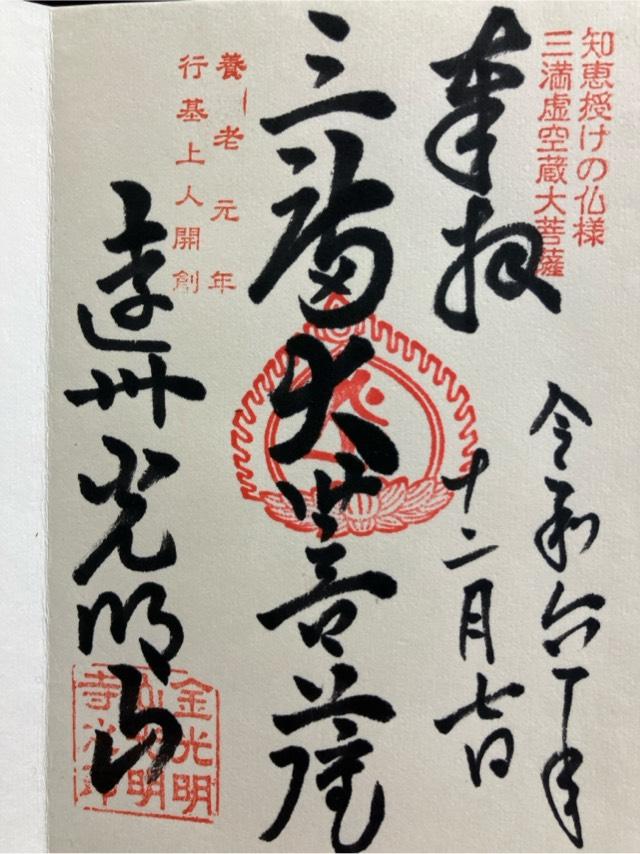 知恵授けの仏様
三満虚空蔵大菩薩
奉拝
令和六年
十二月七日
三満大菩薩
養老元年
行基上人開創
遠州光明山
金光明